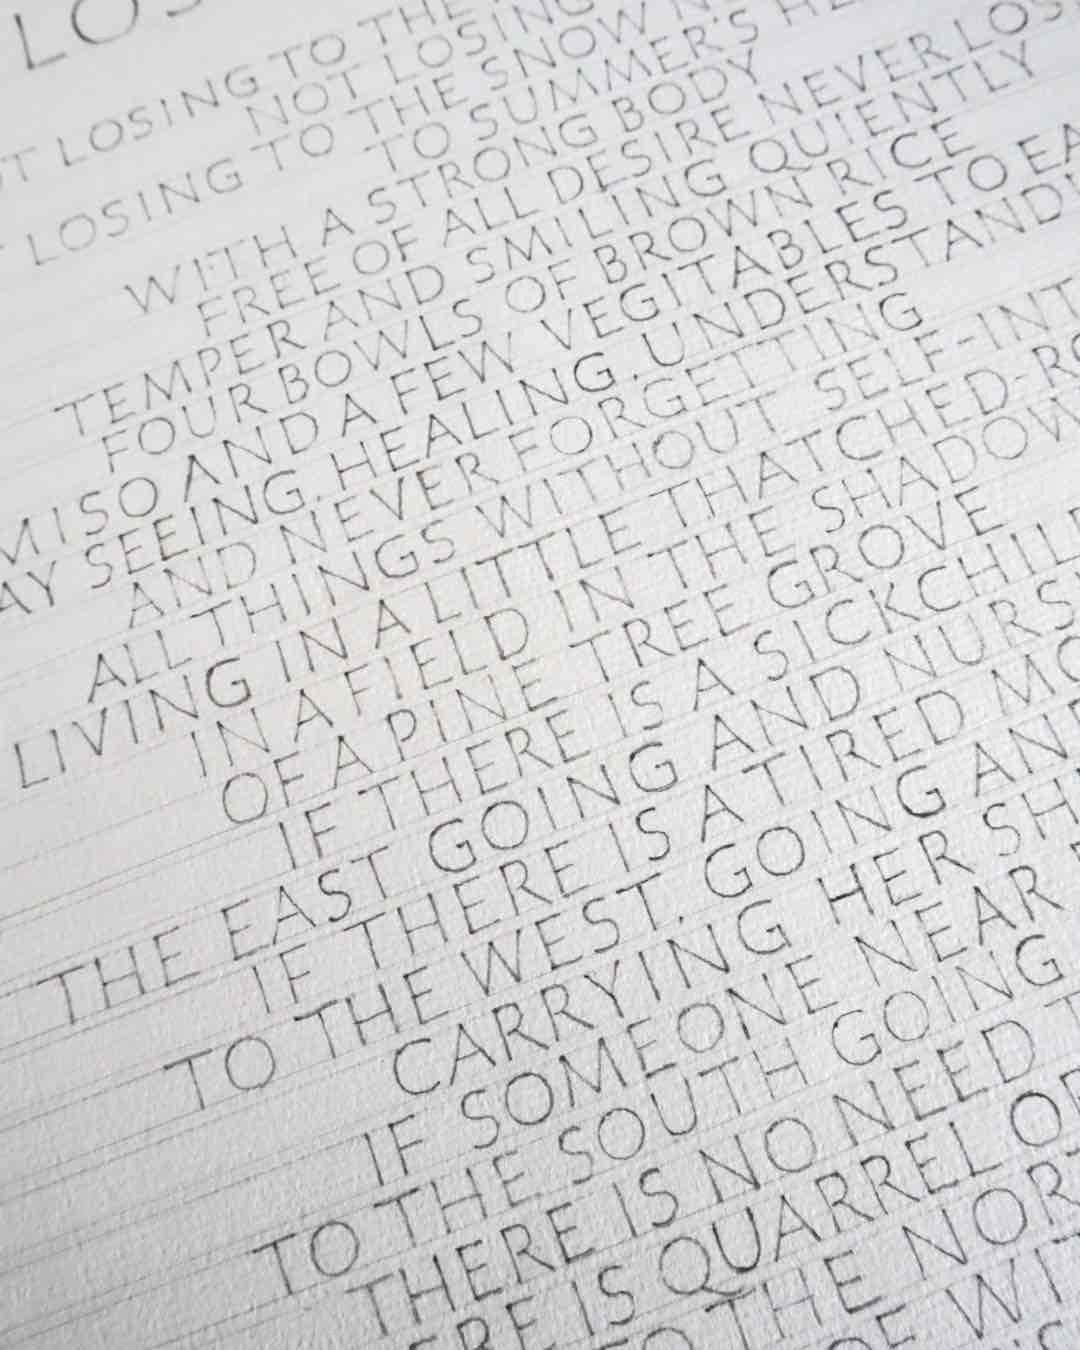 LOS
T LOSING TO THE
NOT LOSING
LOSING TO THE SNOW N
TO SUMMER'S HE
WITH A STRONG BODY
FREE OF ALL DESIRE NEVER LOS
TEMPER AND SMILING QUIENTLY
FOUR BOWLS OF BROWN RICE
MISO AND A FEW VEGITABLES TO EA
AY SEEING, HEALING, UNDERSTANDI
AND NEVER FORGETTING
ALL THINGS WITHOUT SELF-INT
LIVING IN A LITTLE THATCHED-RO
IN A FIELD IN THE SHADOW
OF A PINE TREE GROVE
IF THERE IS A SICKCHIL
THE EAST GOING AND NURSI
IF THERE IS A TIRED MO
TO THE WEST, GOING AND
CARRYING HER SH
IF SOMEONE NEAR
TO THE SOUTH GOING
THERE IS NO NEED T
ERE IS QUARREL OR
TO THE NOR
OF WIT